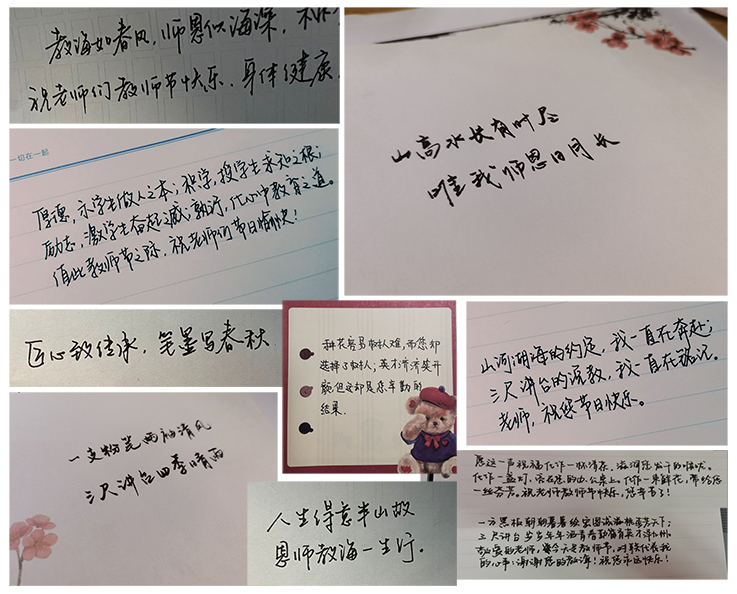 教诲如春风，师恩似海深，
祝老师们教师节快乐、身体健康
山高水长有时尽
唯我师恩日月长
一切在一起
厚德，示学生做人之本；积学，授学生求知之根；
励志，激学生奋起之威；静行，化心中教育之道。
值此教师节之际，祝老师们节日愉快！
匠心致传承，笔墨写春秋
种花容易树人难，而您却
选择了树人；英才济济笑开
颜，但这却是您辛勤的
结果.
山河湖海的约定，我一直在奔赴；
三尺讲台的说教，我一直在铭记。
老师，祝您节日快乐。
一支粉笔两袖清风
三尺讲台四季晴雨
人生得意半山故
恩师教诲一生行。
愿这一声祝福化作一杯清茶，滋润您发干的喉咙。
化作一盏灯，在您的办公桌上。化作一束鲜花，带给您
一丝芬芳。祝老师教师节快乐，您辛苦了！
一方黑板朝朝暮暮绘宏图诚满桃李天下；
三尺讲台岁岁年年洒青春勤育英才泽九州。
敬爱的老师，在今天是教师节，对联代表我
的心声：谢谢您的教诲！祝您永远快乐！